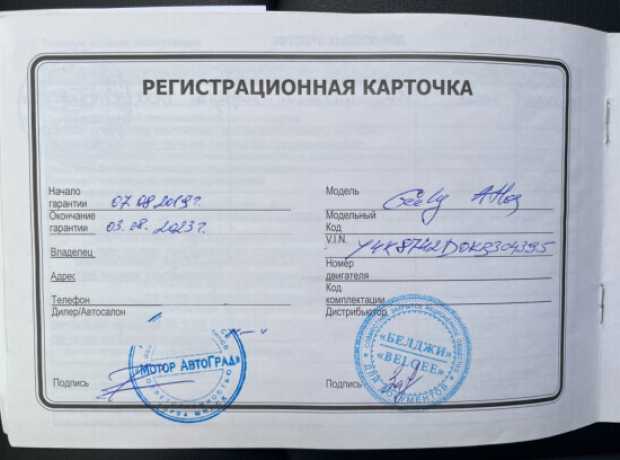 РЕГИСТРАЦИОННАЯ КАРТОЧКА
Начало
гарантии 07.08.2019г.
Окончание
гарантии 03.08.2023г.
Владелец
Адрес
Телефон
Дилер/Автосалон
«Мотор АвтоГрад»
Подпись
Модель Geely Atlas
Модельный
Код
V.I.N.
Номер
двигателя
Код
комплектации
Дистрибьютор
«БЕЛДЖИ»
«BELGEE»
ДЛЯ ДОКУМЕНТОВ
Подпись